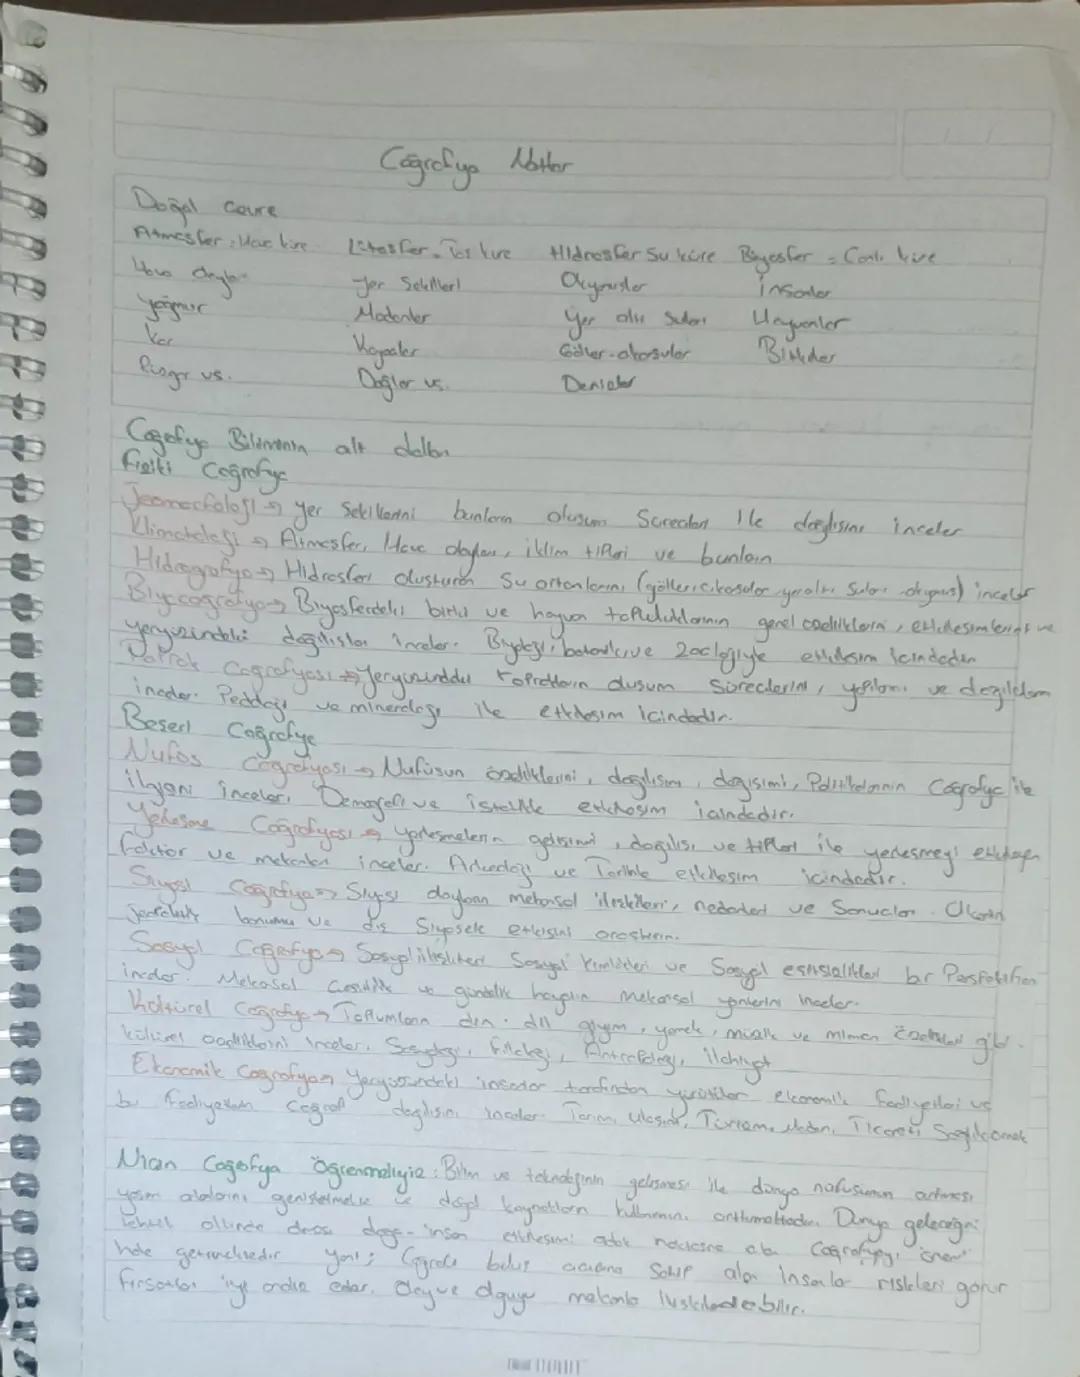 Coğrafya Notları
Doğal Çevre
Atmosfer: Hava küre Litosfer = Taş küre Hidrosfer Su küre Biyosfer = Canlı küre
Hava olayları Yer Şekilleri Okyanuslar İnsanlar
Yağmur Madenler Yer altı Suları Hayvanlar
Kar Kayaçlar Göller-akarsular Bitkiler
Rüzgar vs. Dağlar vs. Denizler
Coğrafya Biliminin alt dalları
Fiziki Coğrafya
Jeomorfoloji → Yer Şekillerini bunların oluşum Süreçleri ile dağılışını inceler
Klimatoloji → Atmosfer, Hava olayları, iklim tipleri ve bunların
Hidrografya → Hidrosferi oluşturan Su ortamlarını (göller, akarsular yeraltı Suları okyanus) inceler
Biyocoğrafya → Biyosferdeki bitki ve hayvan topluluklarının genel özelliklerini, etkileşimlerini ve
yeryüzündeki dağılışları inceler. Biyoloji, botanik ve Zooloji ile etkileşim içindedir
Toprak Coğrafyası → Yeryüzündeki Toprakların oluşum Süreçlerini, yapılarını ve dağılışlarını
inceler. Pedoloji ve mineraloji ile etkileşim içindedir.
Beşeri Coğrafya
Nüfus Coğrafyası → Nüfusun özelliklerini, dağılışını, değişimi, Politikalarının Coğrafya ile
ilgisini inceler. Demografi ve istatistik etkileşim içindedir.
Yerleşme Coğrafyası → yerleşmelerin gelişimi, dağılışı ve tipleri ile yerleşmeyi etkileyen
faktör ve mekanları inceler. Arkeoloji ve Tarihle etkileşim içindedir.
Siyasi Coğrafya → Siyasi olayların mekansal ilişkileri, nedenleri ve Sonuçları. Ülkenin
konumu ve dış Siyasete etkisini araştırır.
Sosyal Coğrafya → Sosyal ilişkileri Sosyal kimlikleri ve Sosyal eşitsizlikleri bir Perspektiften
inceler. Mekansal ve gündelik hayatın mekansal yönlerini inceler.
Kültürel Coğrafya → Toplumların din. dil giyim, yemek, müzik ve mimari Özellikleri gibi.
kültürel özelliklerini inceler. Sosyoloji, Filoloji, Antropoloji, ilahiyat
Ekonomik Coğrafya → Yeryüzündeki insanlar tarafından yürütülen ekonomik faaliyetleri ve
bu faaliyetlerin Coğrafi dağılışını inceler. Tarım, ulaşım, Turizm, Maden, Ticareti
Niçin Coğrafya Öğrenmeliyiz: Bilim ve teknolojinin gelişmesi ile dünya nüfusunun artması
yaşam alanlarını genişletmekte ve doğal kaynakların kullanımını arttırmaktadır. Dünya geleceğini
doğa-insan etkileşimi odak noktasına alan Coğrafyayı önemli
hale getirmektedir yani; Coğrafi bakış açısına Sahip olan insanlar riskleri görür
fırsatları iyi analiz eder, Olay ve olguyu mekanla ilişkilendirebilir.